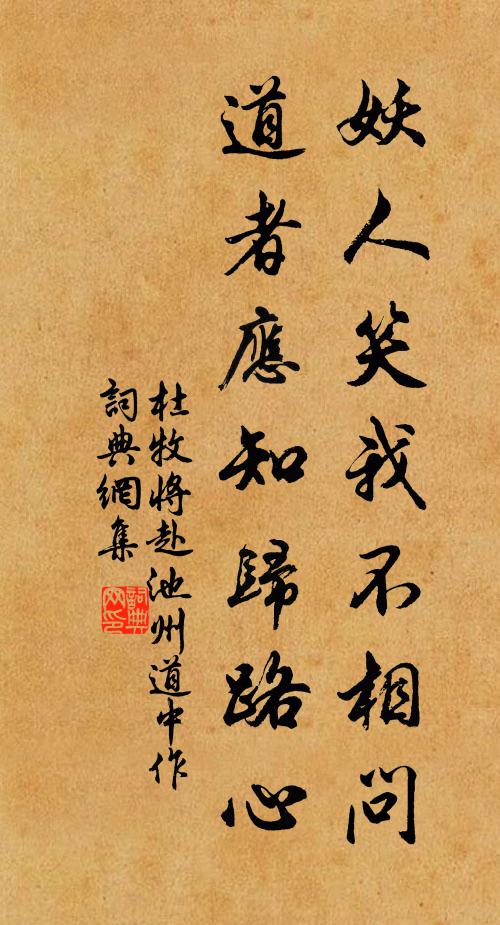 妖人笑我不相問
道者應知歸路心
杜牧將赴池州道中作
詞典網集
詞典網印